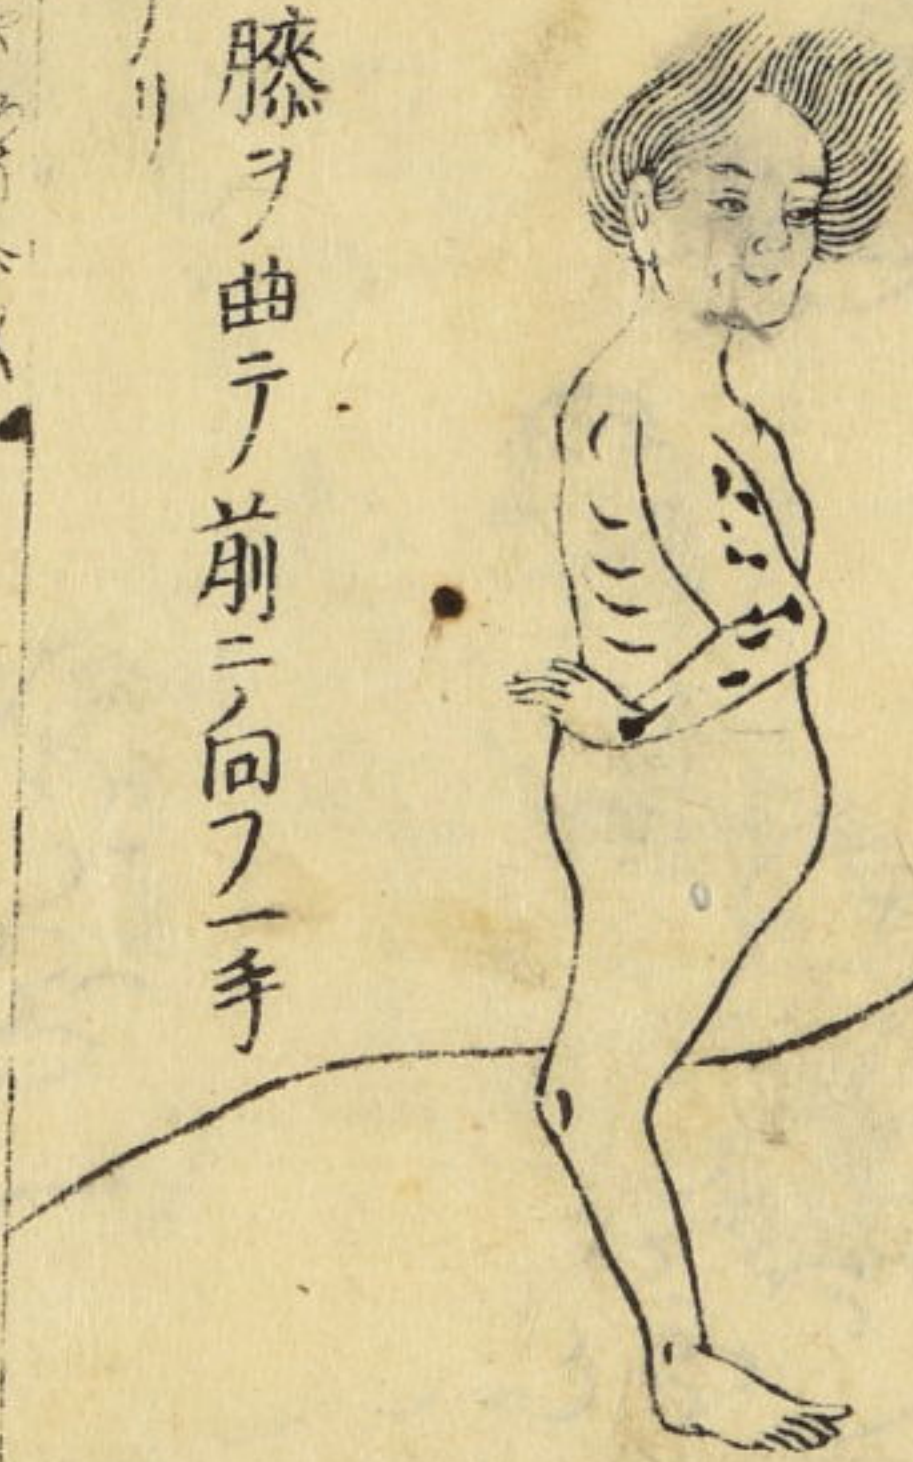 膝ヲ曲テ前ニ向フ一手
リ